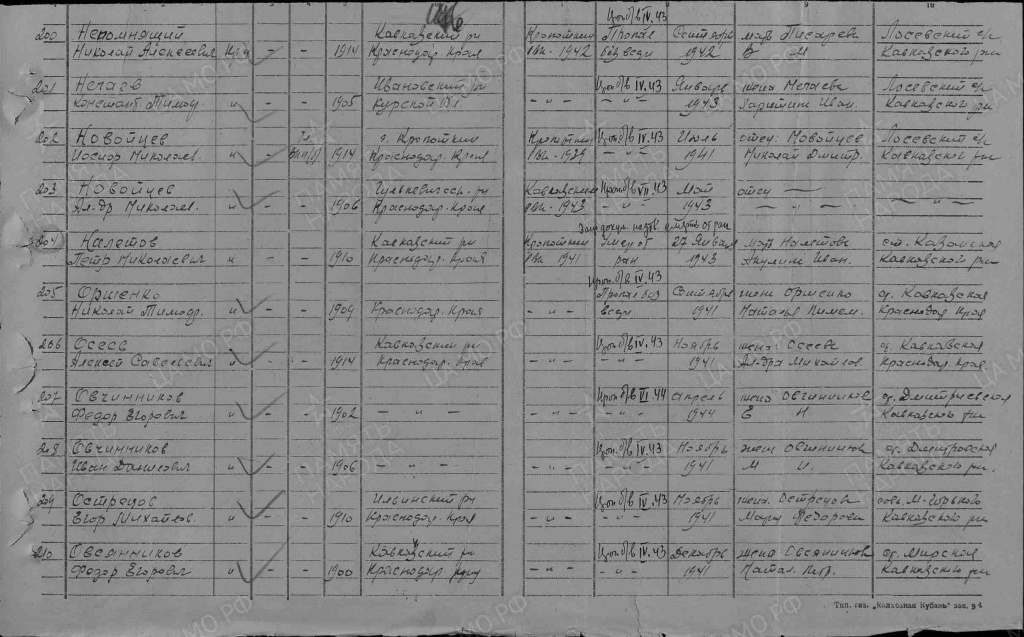 9 10
Цпо б/в IV.43
200 Непомнящий Кавказский р-н Кропоткин Пропал Сентябрь мать Писарева Лосевский с/с
Николай Алексеевич кр-ц - - 1914 Краснодар. Края РВК-1942 без вести 1942 В М Кавказского р-н
201 Нечаев Ивановский р-н Цпо б/в IV.43 Январь жена Нечаева Лосевский с/с
Констант. Тимоф. " - - 1905 Курской обл - " - - " - 1943 Харитина Иван. Кавказского р-н
202 Новойцев г. Кропоткин Кропоткин Цпо б/в IV.43 Июль отец Новойцев Лосевский с/с
Иосиф Николаев. " 1914 Краснодар. Края РВК-1939 - " - 1941 Николай Дмитр. Кавказского р-н
203 Новойцев Гулькевичск. р-н Кавказским Цпо б/в VII.43 Май отец - " -
Ал-др Николаев. " - - 1906 Краснодар. Края РВК-1943 - " - 1943 - " -
204 Налетов Кавказский р-н Кропоткин Умер от 27 Января мать Налетова ст. Казанская
Петр Николаевич " - - 1910 Краснодар. Края РВК 1941 ран 1943 Акулина Иван. Кавказского р-н
Цпо б/в IV.43
205 Оршенко Пропал без Сентябрь жена Оршенко ст. Кавказская
Николай Тимоф. " - - 1909 Краснодар. Края - " - вести 1941 Наталья Пимен. Краснодар Края
206 Осеев Кавказский р-н Цпо б/в IV.43 Ноябрь жена Осеева ст. Кавказская
Алексей Савельевич " - - 1914 Краснодар. Края - " - - " - 1941 Ал-дра Михайлов. Краснодар. Края
207 Овчинников Цпо б/в VI.44 апрель жена Овчинникова ст. Дмитриевская
Федор Егорович " - - 1902 - " - - " - - " - 1944 Е Н Кавказского р-н
208 Овчинников Цпо б/в IV.43 Ноябрь жена Овчинников ст. Дмитровская
Иван Данилович " - - 1906 - " - - " - - " - 1941 М И. Кавказского р-н.
209 Острецов Ильинский р-н Цпо б/в IV.43 Ноябрь жена Острецова совх. М-Горького
Егор Михайлов. " - - 1910 Краснодар. Края - " - - " - 1941 Мария Федоровна Кавказского р-н
210 Овсянников Кавказский р-н Цпо б/в IV.43 Декабрь жена Овсянникова ст. Мирская
Федор Егорович " - - 1900 Краснодар. края - " - - " - 1941 Натал. Петр. Кавказского р-н
Тип. газ. „Колхозная Кубань" зак. 94